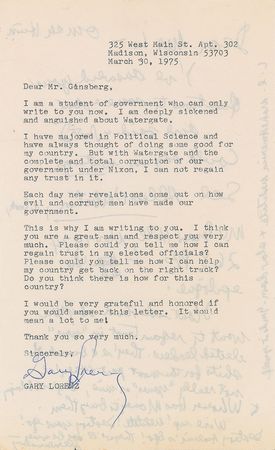 325 West Main St. Apt. 302
Madison, Wisconsin 53703
March 30, 1975
Dear Mr. Gansberg,
I am a student of government who can only
write to you now. I am deeply sickened
and anguished about Watergate.
I have majored in Political Science and
have always thought of doing some good for
my country. But with Watergate and the
complete and total corruption of our
government under Nixon, I can not regain
any trust in it.
Each day new revelations come out on how
evil and corrupt men have made our
government.
This is why I am writing to you. I think
you are a great man and respect you very
much. Please could you tell me how I can
regain trust in my elected officials?
Please could you tell me how I can help
my country get back on the right track?
Do you think there is how for this
country?
I would be very grateful and honored if
you would answer this letter. It would
mean a lot to me!
Thank you so very much.
Sincerely,
Gary Lorenz
GARY LORENZ